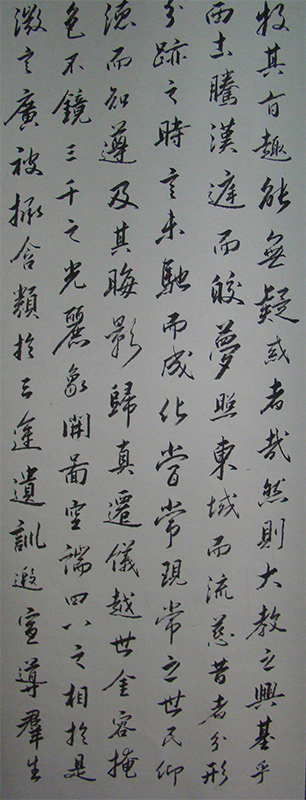 投其旨趣能無疑或者哉然則大教之興基乎
西土騰漢庭而皎夢照東域而流慈昔者分形
分跡之時言未馳而成化當常現常之世民仰
德而知遵及其晦影歸真遷儀越世金容掩
色不鏡三千之光麗象開圖空端四八之相於是
微言廣被拯含類於三途遺訓遐宣導羣生